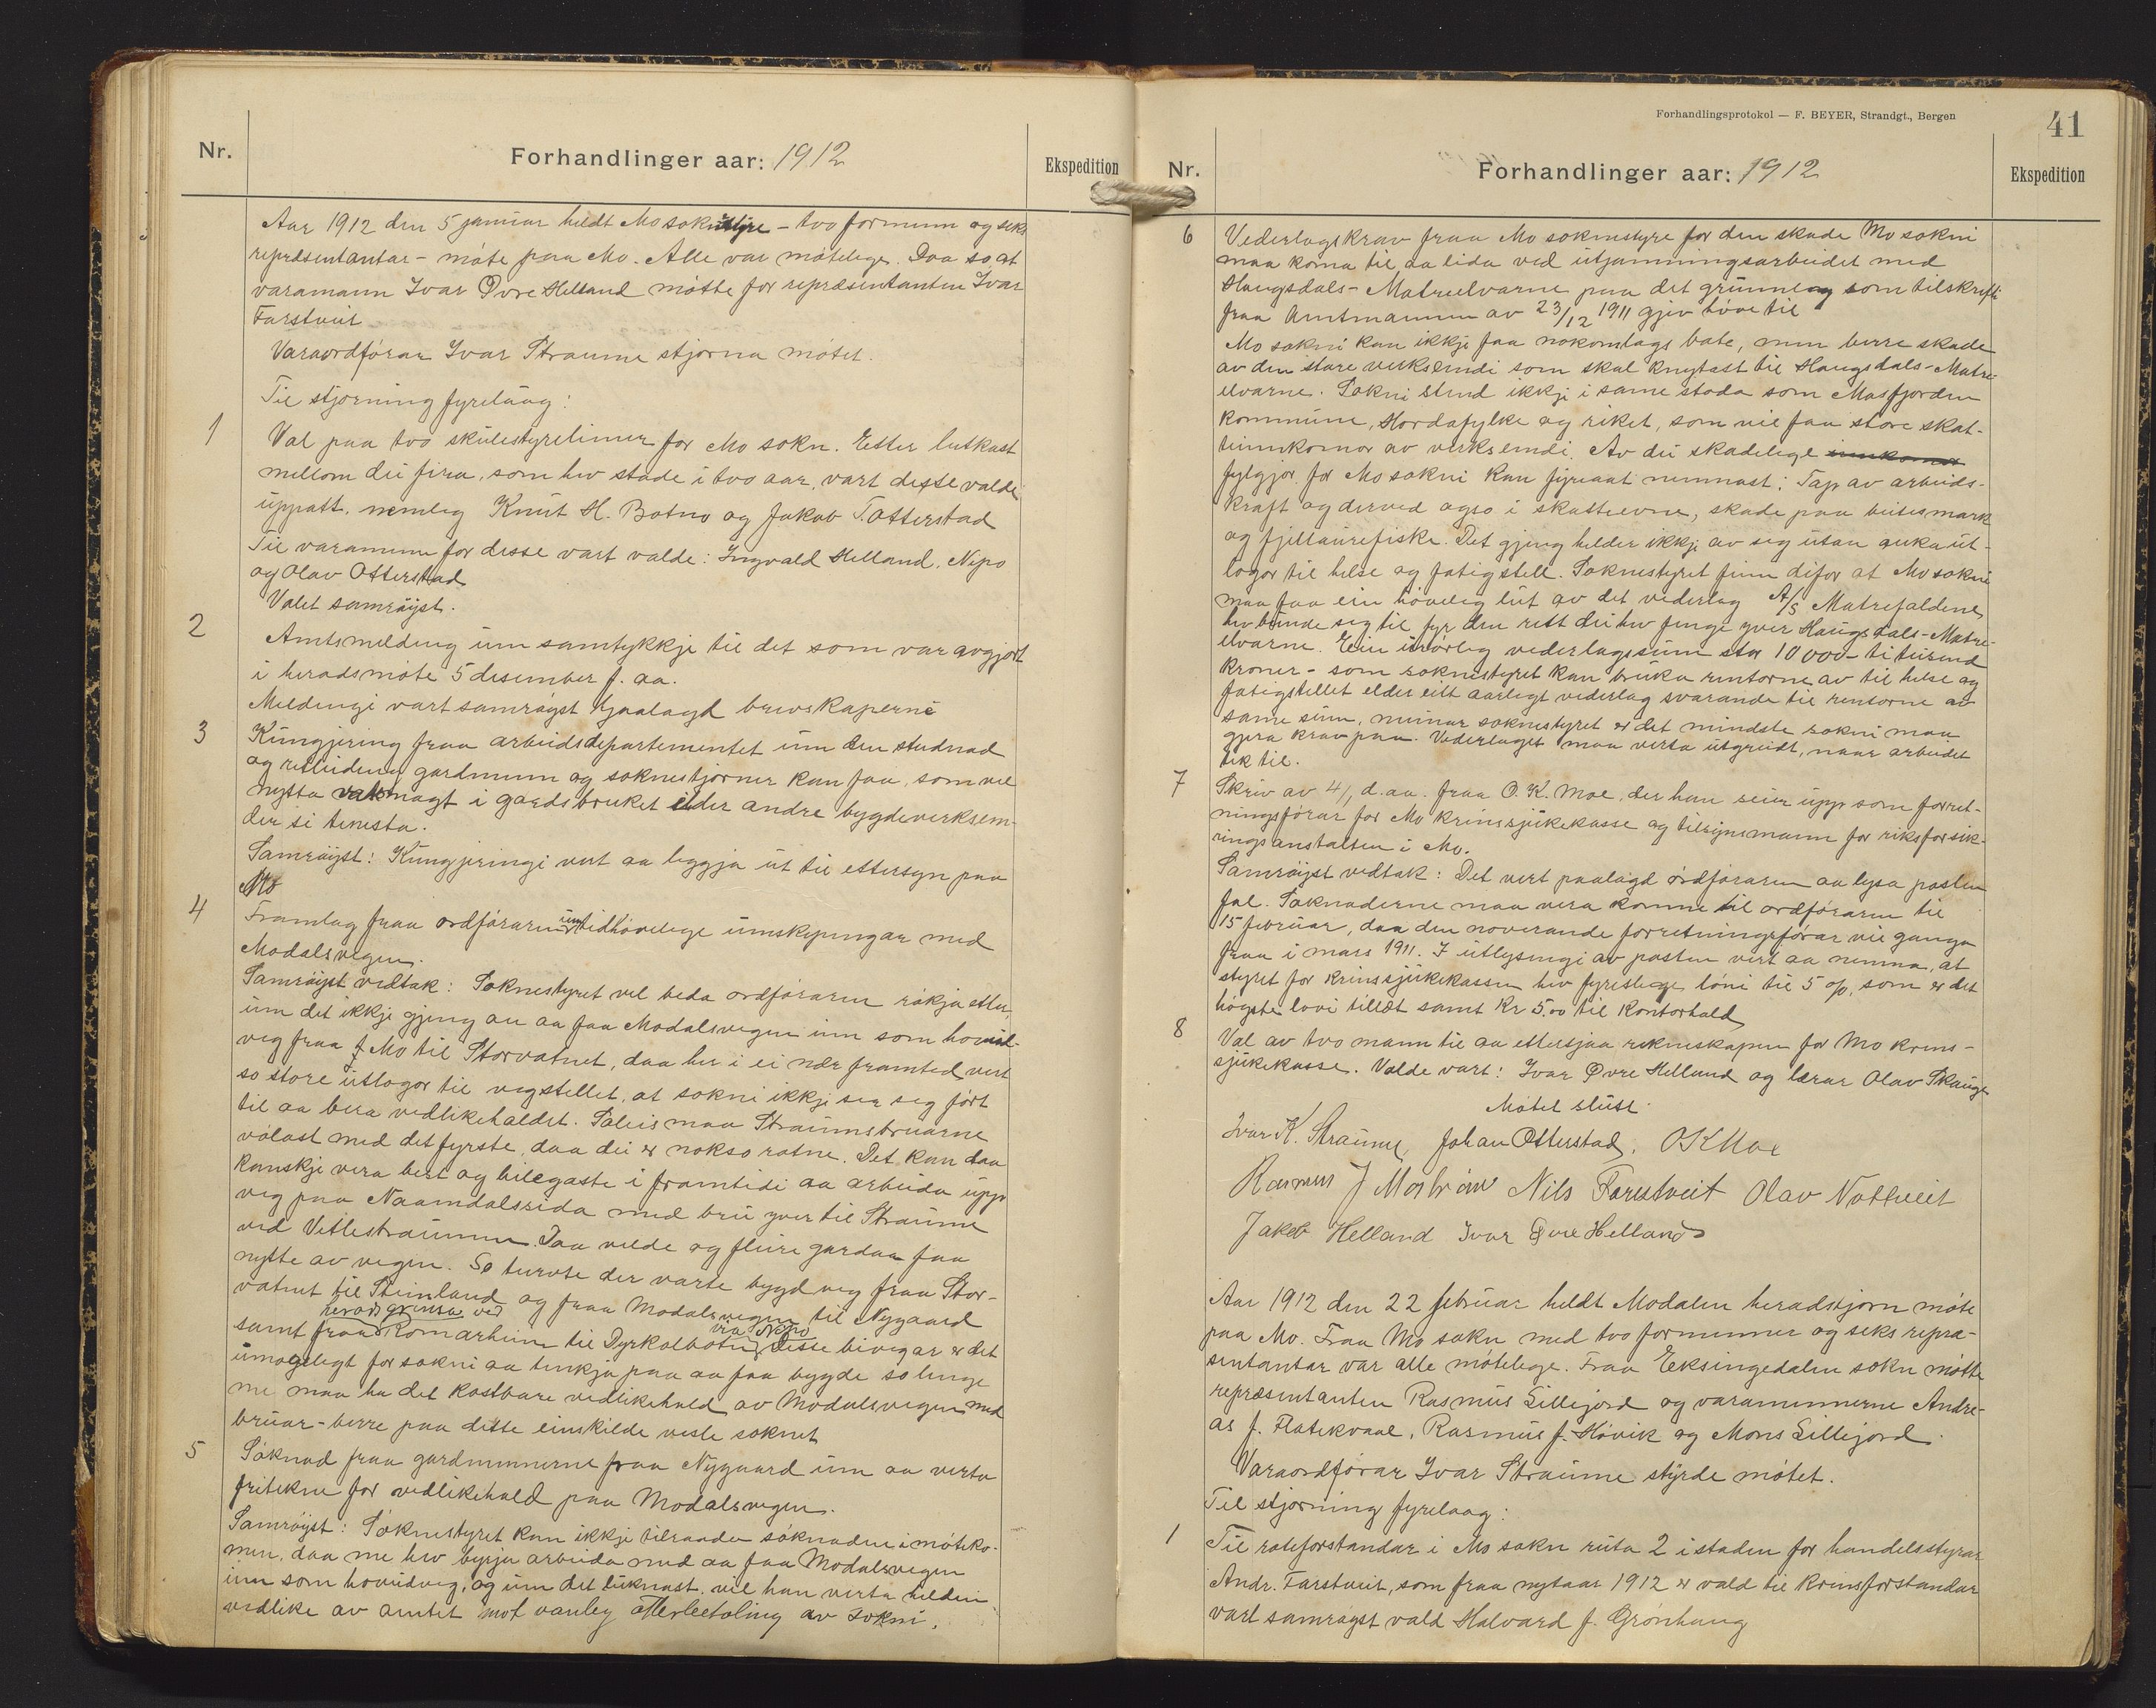 Nr.
Forhandlinger aar: 1912
Ekspedition
Aar 1912 den 5 januar heldt Mo soknstyre - tvo formenn og seks
repræsentantar - móte paa Mo. Alle var mótelege. Daa so at
varamann Ivar Øvre Helland mótte for repræsentanten Ivar
Farstveit
Varaordfórar Ivar Straume stjorna mótet.
Til stjorning fyrelaag:
1 Val paa tvo skulestyrelimer for Mo sokn. Etter lutkast
millom dei fira, som hev stade i tvo aar, vart desse valde
uppatt, nemleg Knut H. Botno og Jakob T. Otterstad
Til varamenn for desse vart valde: Ingvald Helland, Nepo
og Olav Otterstad
Valet samróyst.
2 Amtsmelding um samtykkje til det som var avgjort
i heradsmóte 5 desember f. aa.
Meldingi vart samróyst hjaalagd brevskaperne
3 Kungjering fraa arbeidsdepartementet um den studnad
og rettleiding gardmenn og soknestjorner kan faa, som vil
nytta vatsmagt i gardsbruket elder andre bygdeverksem-
der si tenesta.
Samróyst: Kungjeringi vert aa leggja ut til ettersyn paa
Mo
4 Framlag fraa ordfóraren um tidhóvelege umskipingar med
Modalsvegen.
Samróyst vedtak: Soknestyret vil beda ordfóraren rókja etter,
um det ikkje gjeng an aa faa Modalsvegen inn som hovud-
veg fraa Mo til Storvatnet, daa her i ei nær framtid vert
so store utlogor til vegstellet, at sokni ikkje ser seg fórt
til aa bera vedlikehaldet. Soleis maa Straumsbruarne
vólast med det fyrste, daa dei er nokso rotne. Det kan daa
kanskje vera best og bilegaste i framtidi aa arbeida upp
veg paa Naamdalssida med bru yver til Straume
ved Vetlestraumen. Daa vilde og fleire gardar faa
nytte av vegen. So turvte der varte bygd veg fraa Stor-
vatnet til Steinland og fraa Modalsvegen til Nygaard
samt fraa heradsgrensa ved Romarheim til Dyrkolbotn via Nepo. Disse bivegar er det
umogelegt for sokni aa tenkja paa aa faa bygde so lenge
me maa ha det kostbare vedlikehald av Modalsvegen med
bruar - berre paa dette einskilde vesle soknet
5 Sóknad fraa gardmennerne fraa Nygaard um aa verta
fritekne for vedlikehald paa Modalsvegen.
Samróyst: Soknestyret kan ikkje tilraada sóknaden i móteko-
men, daa me hev byrja arbeida med aa faa Modalsvegen
inn som hovudveg, og um det luknast, vil han verta halden
vedlike av amtet mot vanleg atterbetaling av sokni.
Forhandlingsprotokol — F. BEYER, Strandgt., Bergen
41
Nr.
Forhandlinger aar: 1912
Ekspedition
6 Vederlagskrav fraa Mo soknestyre for den skade Mo sokni
maa koma til aa lida ved utjamningsarbeidet med
Haugsdals- Matreelvarne paa det grunnlag som tilskrift
fraa Amtmannen av 23/12 1911 gjev hóve til
Mo sokni kan ikkje faa nokonslags bate, men berre skade
av den store verksemdi som skal knytast til Haugsdals-Matre-
elvarne. Sokni stend ikkje i same stoda som Masfjorden
kommune, Hordafylke og riket, som vil faa store skat-
teinnkomor av verksemdi. Av dei skadelege
fylgjor for Mo sokni kan fyreaat nemnast: Tap av arbeids-
kraft og derved ogso i skatteevne, skade paa beitesmark
og fjellaurefiske. Det gjeng helder ikkje av seg utan auka ut-
logor til helse og fatigstell. Soknestyret finn difor at Mo sokni
maa faa ein hóveleg lut av det vederlag A/S Matrefaldene
hev bunde seg til fyr den rett dei hev fenge yver Haugsdals-Matre-
elvarne. Ein urórleg vederlagssum stor 10000 - ti tusend
kroner - som soknestyret kan bruka rentorne av til helse og
fatigstellet elder eitt aarlegt vederlag svarande til rentorne av
same sum, meinar soknestyret er det mindste sokni maa
gjera krav paa. Vederlaget maa verta utgreidt, naar arbeidet
tek til.
7 Skriv av 4/1 d.aa. fraa O. K. Moe, der han seier upp som forret-
ningsfórar for Mo krinssjukekasse og tilsynsmann for riksforsik-
ringsanstalten i Mo.
Samróyst vedtak: Det vert paalagd ordfóraren aa lysa posten
fal. Sóknaderne maa vera komne til ordfóraren til
15 februar, daa den noverande forretningsfórar vil ganga
fraa i mars 1911. I utlysingi av posten vert aa nemna, at
styret for krinssjukekassen hev fyreslege lóni til 5 %, som er det
hógste lovi tillæt samt kr 5.00 til kontorhald
8 Val av tvo mann til aa ettersjaa rekneskapen for Mo krins-
sjukekasse. Valde vart: Ivar Øvre Helland og lærar Olav Skauge
Mótet slutt.
Ivar K. Straume, Johan Otterstad, O K Moe
Rasmus J Nils Farestveit Olav Nottveit
Jakob Helland Ivar Øvre Helland
Aar 1912 den 22 februar heldt Modalen heradstjorn móte
paa Mo. Fraa Mo sokn med tvo formenner og seks repræ-
sentantar var alle mótelege. Fraa Eksingedalen sokn mótte
repræsentanten Rasmus Lillejord og varamennerne Andre-
as J. Flatekvaal, Rasmus J. Hóvik og Mons Lillejord.
Varaordfórar Ivar Straume styrde mótet.
Til stjorning fyrelaag:
1 Til roteforstandar i Mo sokn ruta 2 i staden for handelsstyrar
Andr. Farstveit, som fraa nytaar 1912 er vald til krinsforstandar
vart samróyst vald Halvard J. Grónhaug